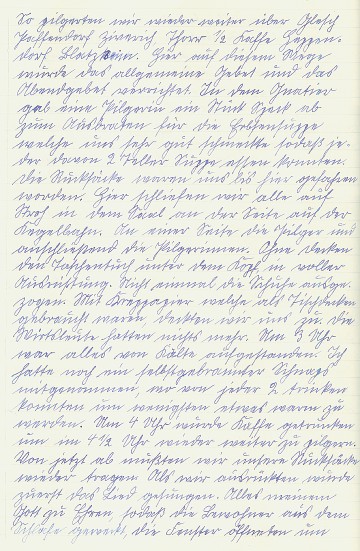 So pilgerten wir wieder weiter über Glesch
Paffendorf zwerich Thorr ½ Kaffe Heppen-
dorf Blatzheim. Hier auf diesem Wege
wurde das allgemeine Gebet und das
Abendgebet verrichtet. In dem Quatier
gab eine Pilgerin ein Stück Speck ab
zum Ausbraten für die Erbsensuppe
welche uns sehr gut schmeckte sodaß je-
der davon 2 Teller Suppe essen konnten.
Die Rucksäcke waren uns bis hier gefahren
worden. Hier schliefen wir alle auf
Stroh in dem Saal an der Seite auf der
Kegelbahn. An einer Seite die Pilger und
anschliessend die Pilgerinnen. Ohne Decken
den Taschentuch unter dem Kopf in voller
Ausrüstung. Nicht einmal die Schuhe ausge-
zogen. Mit Kreppapier welche als Tischdecken
gebraucht waren deckten wir uns zu. Die
Wirtsleute hatten nichts mehr. Um 3 Uhr
war alles von Kälte aufgestanden. Ich
hatte noch ein selbstgebrannter Schnaps
mitgenommen, wo von jeder 2 trinken
konnten um wenigsten etwas warm zu
werden. Um 4 Uhr wurde Kaffe getrunken
um im 4½ Uhr wieder weiter zu pilgern.
Von jetzt ab mußten wir unsere Rucksäcke
wieder tragen. Als wir ausrückten wurde
zuerst das Lied gesungen. Alles meinem
Gott zu Ehren, sodaß die Bewohner aus dem
Schlafe geweckt, die Fenster öffneten um